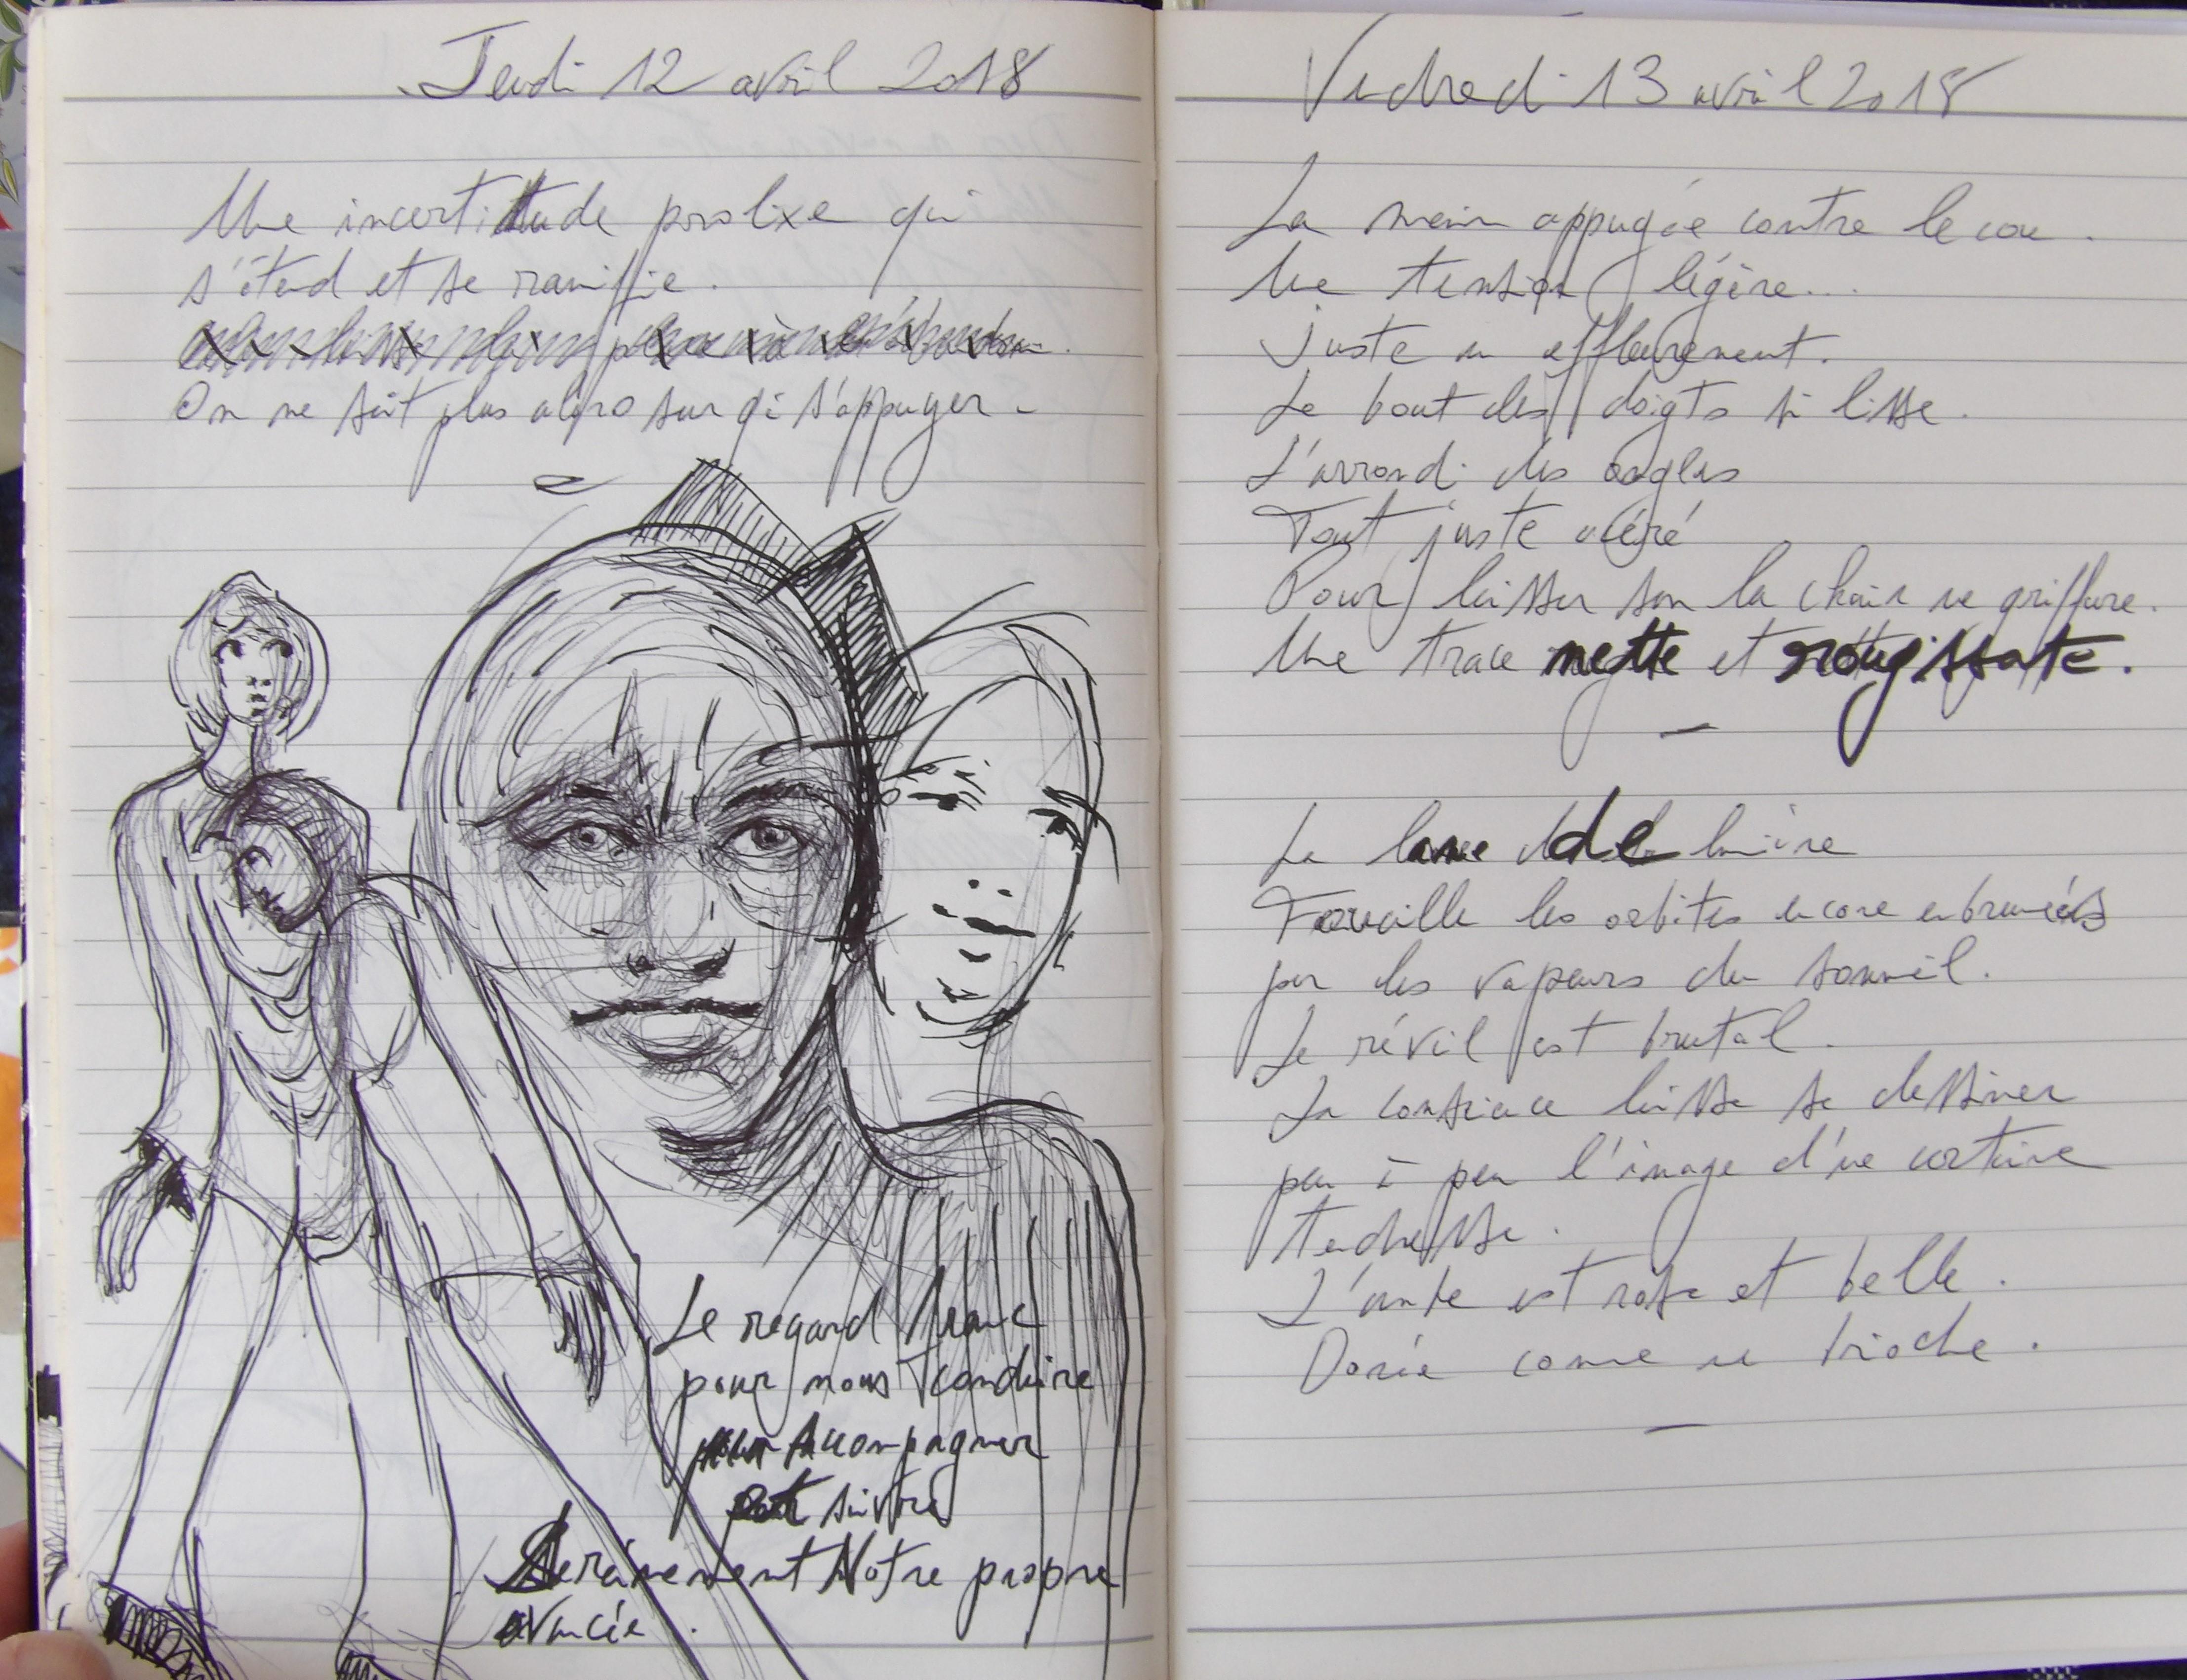 Jeudi 12 avril 2018
Une incertitude prolixe qui
s'étend et se ramifie.
On ne sait plus alors sur qui s'appuyer.
Le regard franc
pour nous conduire
pour accompagner
et suivre
Sereinement Notre propre
avancée.
Vendredi 13 avril 2018
La main appuyée contre le cou.
Une tension légère...
Juste un effleurement.
Le bout des doigts si lisse.
L'arrondi des ongles
Tout juste acéré
Pour laisser sur la chair une griffure.
Une trace nette et rougissante.
La lame de lumière
Fouille les orbites encore embrumées
par les vapeurs du sommeil.
Le réveil est brutal.
La conscience laisse se dessiner
peu à peu l'image d'une certaine
tendresse.
L'aube est rose et belle.
Dorée comme une brioche.